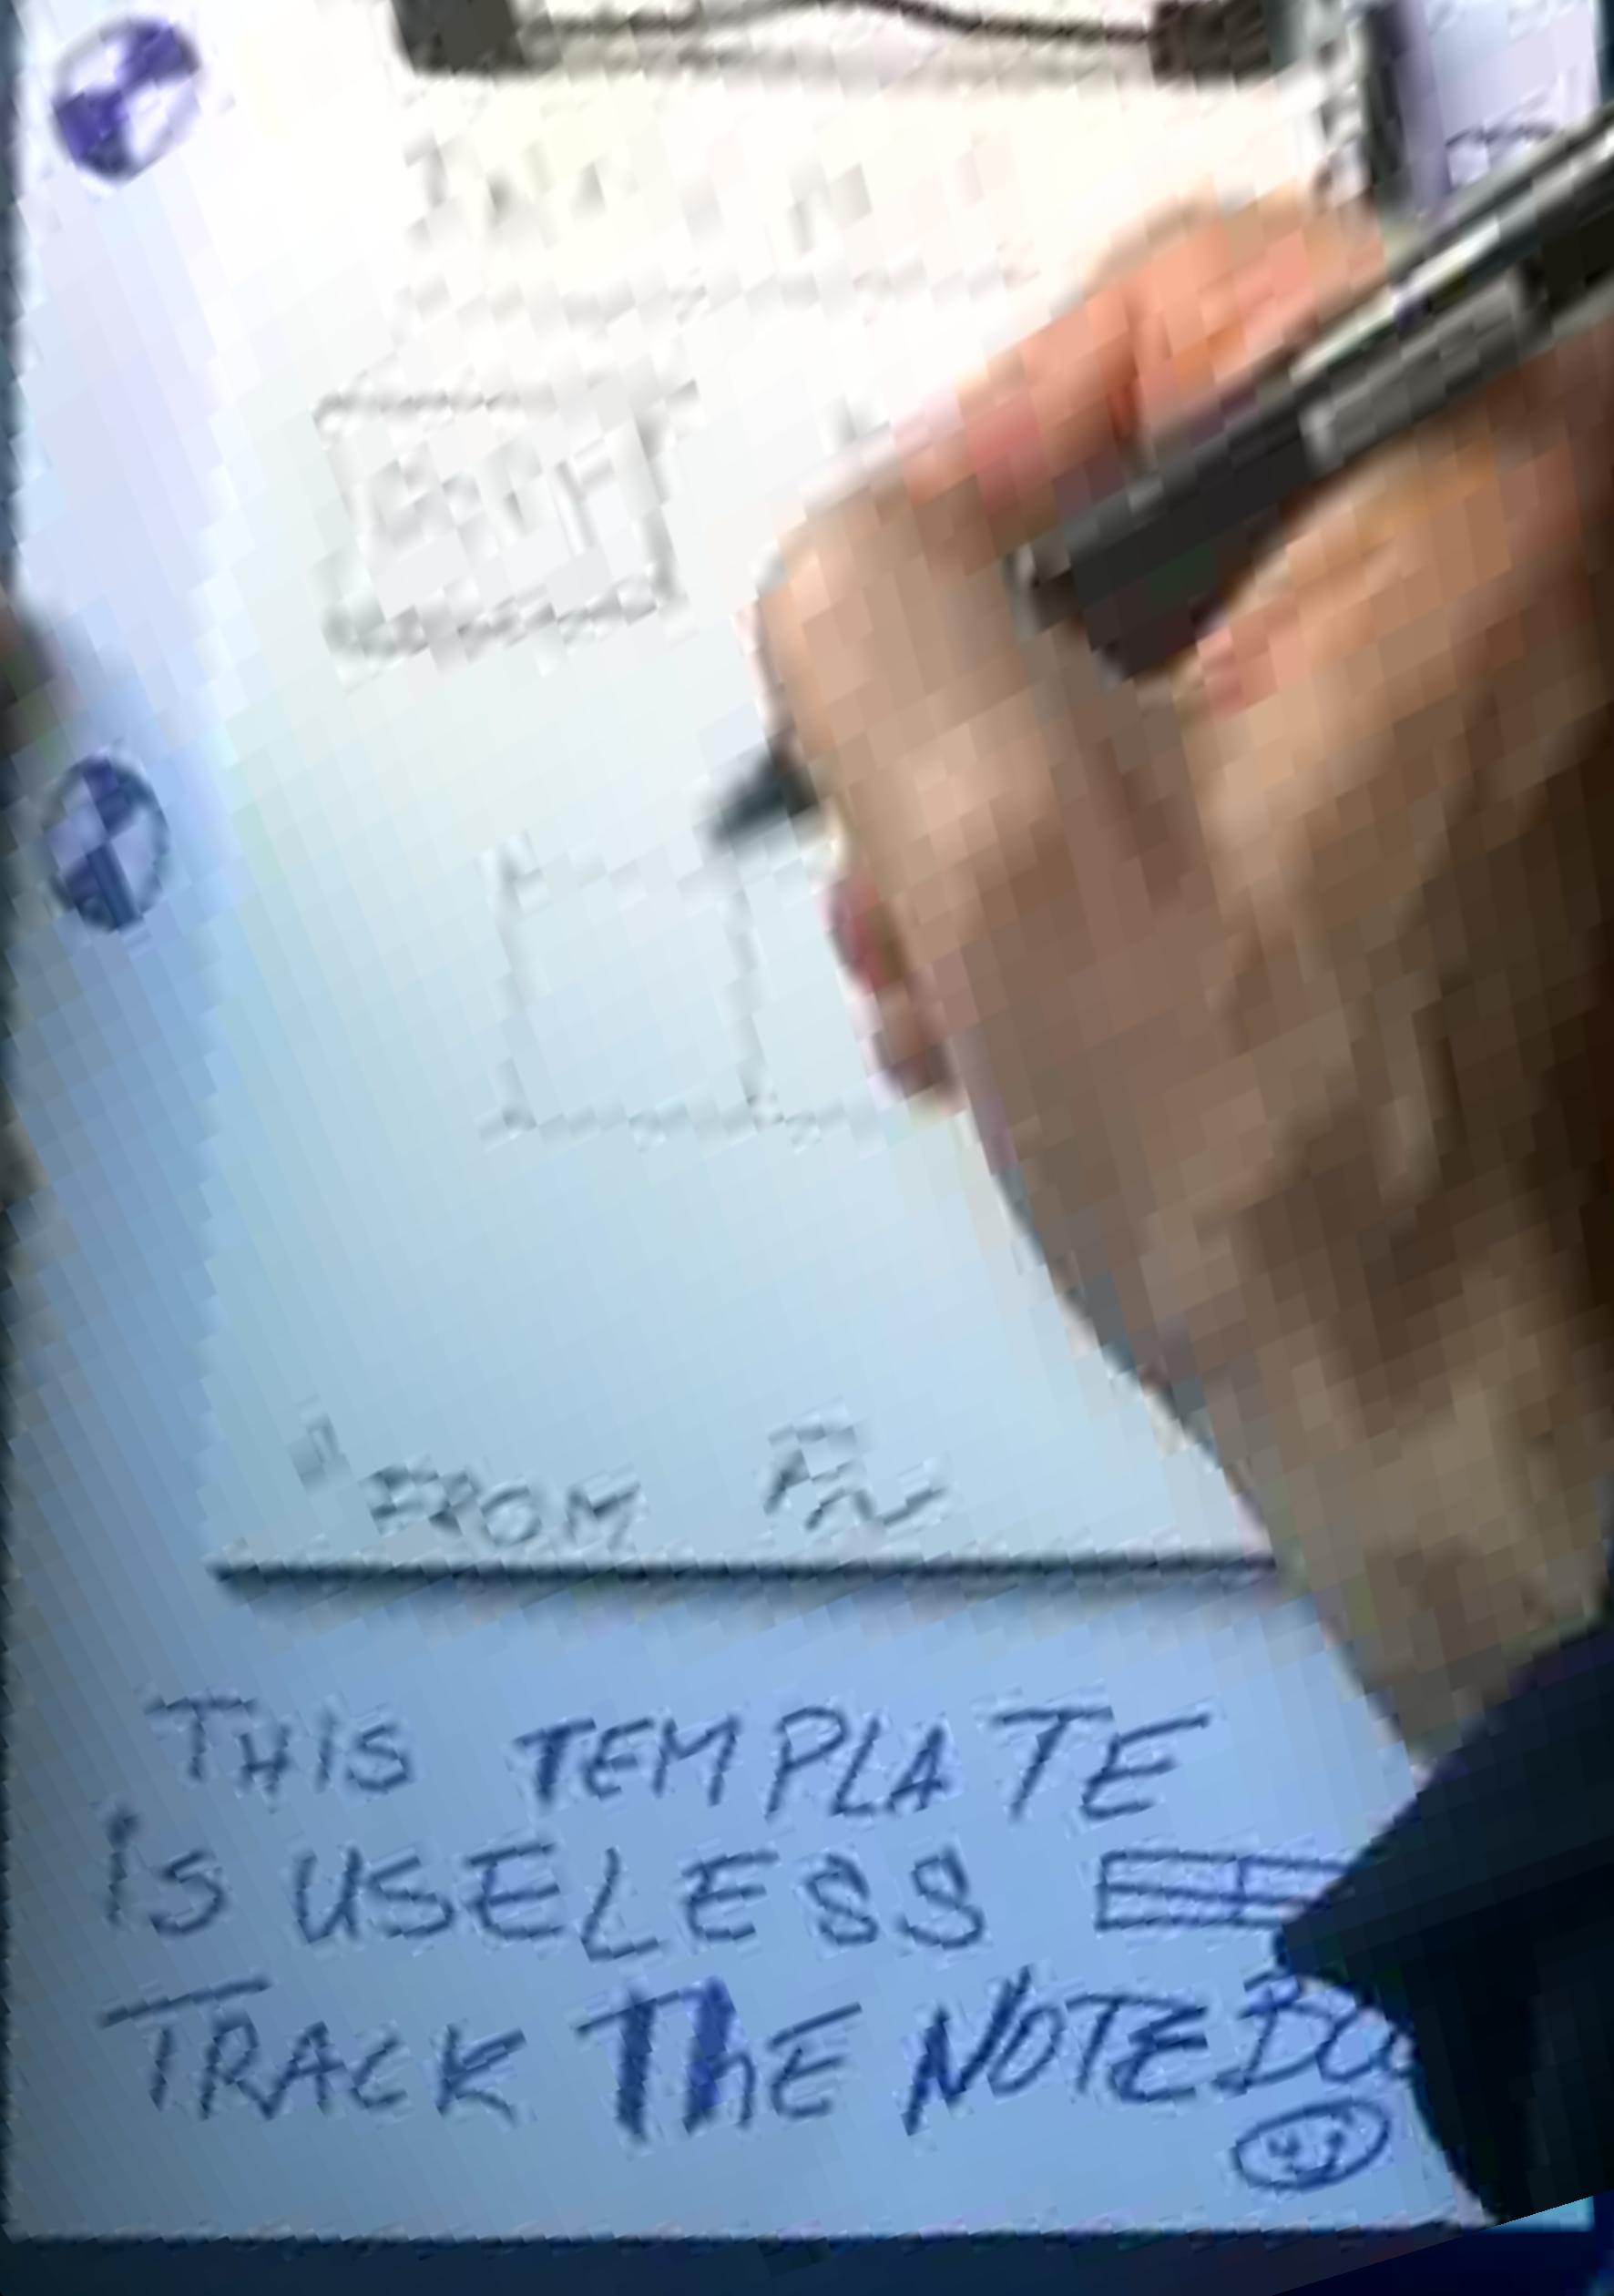 FROM
THIS TEMPLATE
iS USELESS
TRACK ThE NOTEBO